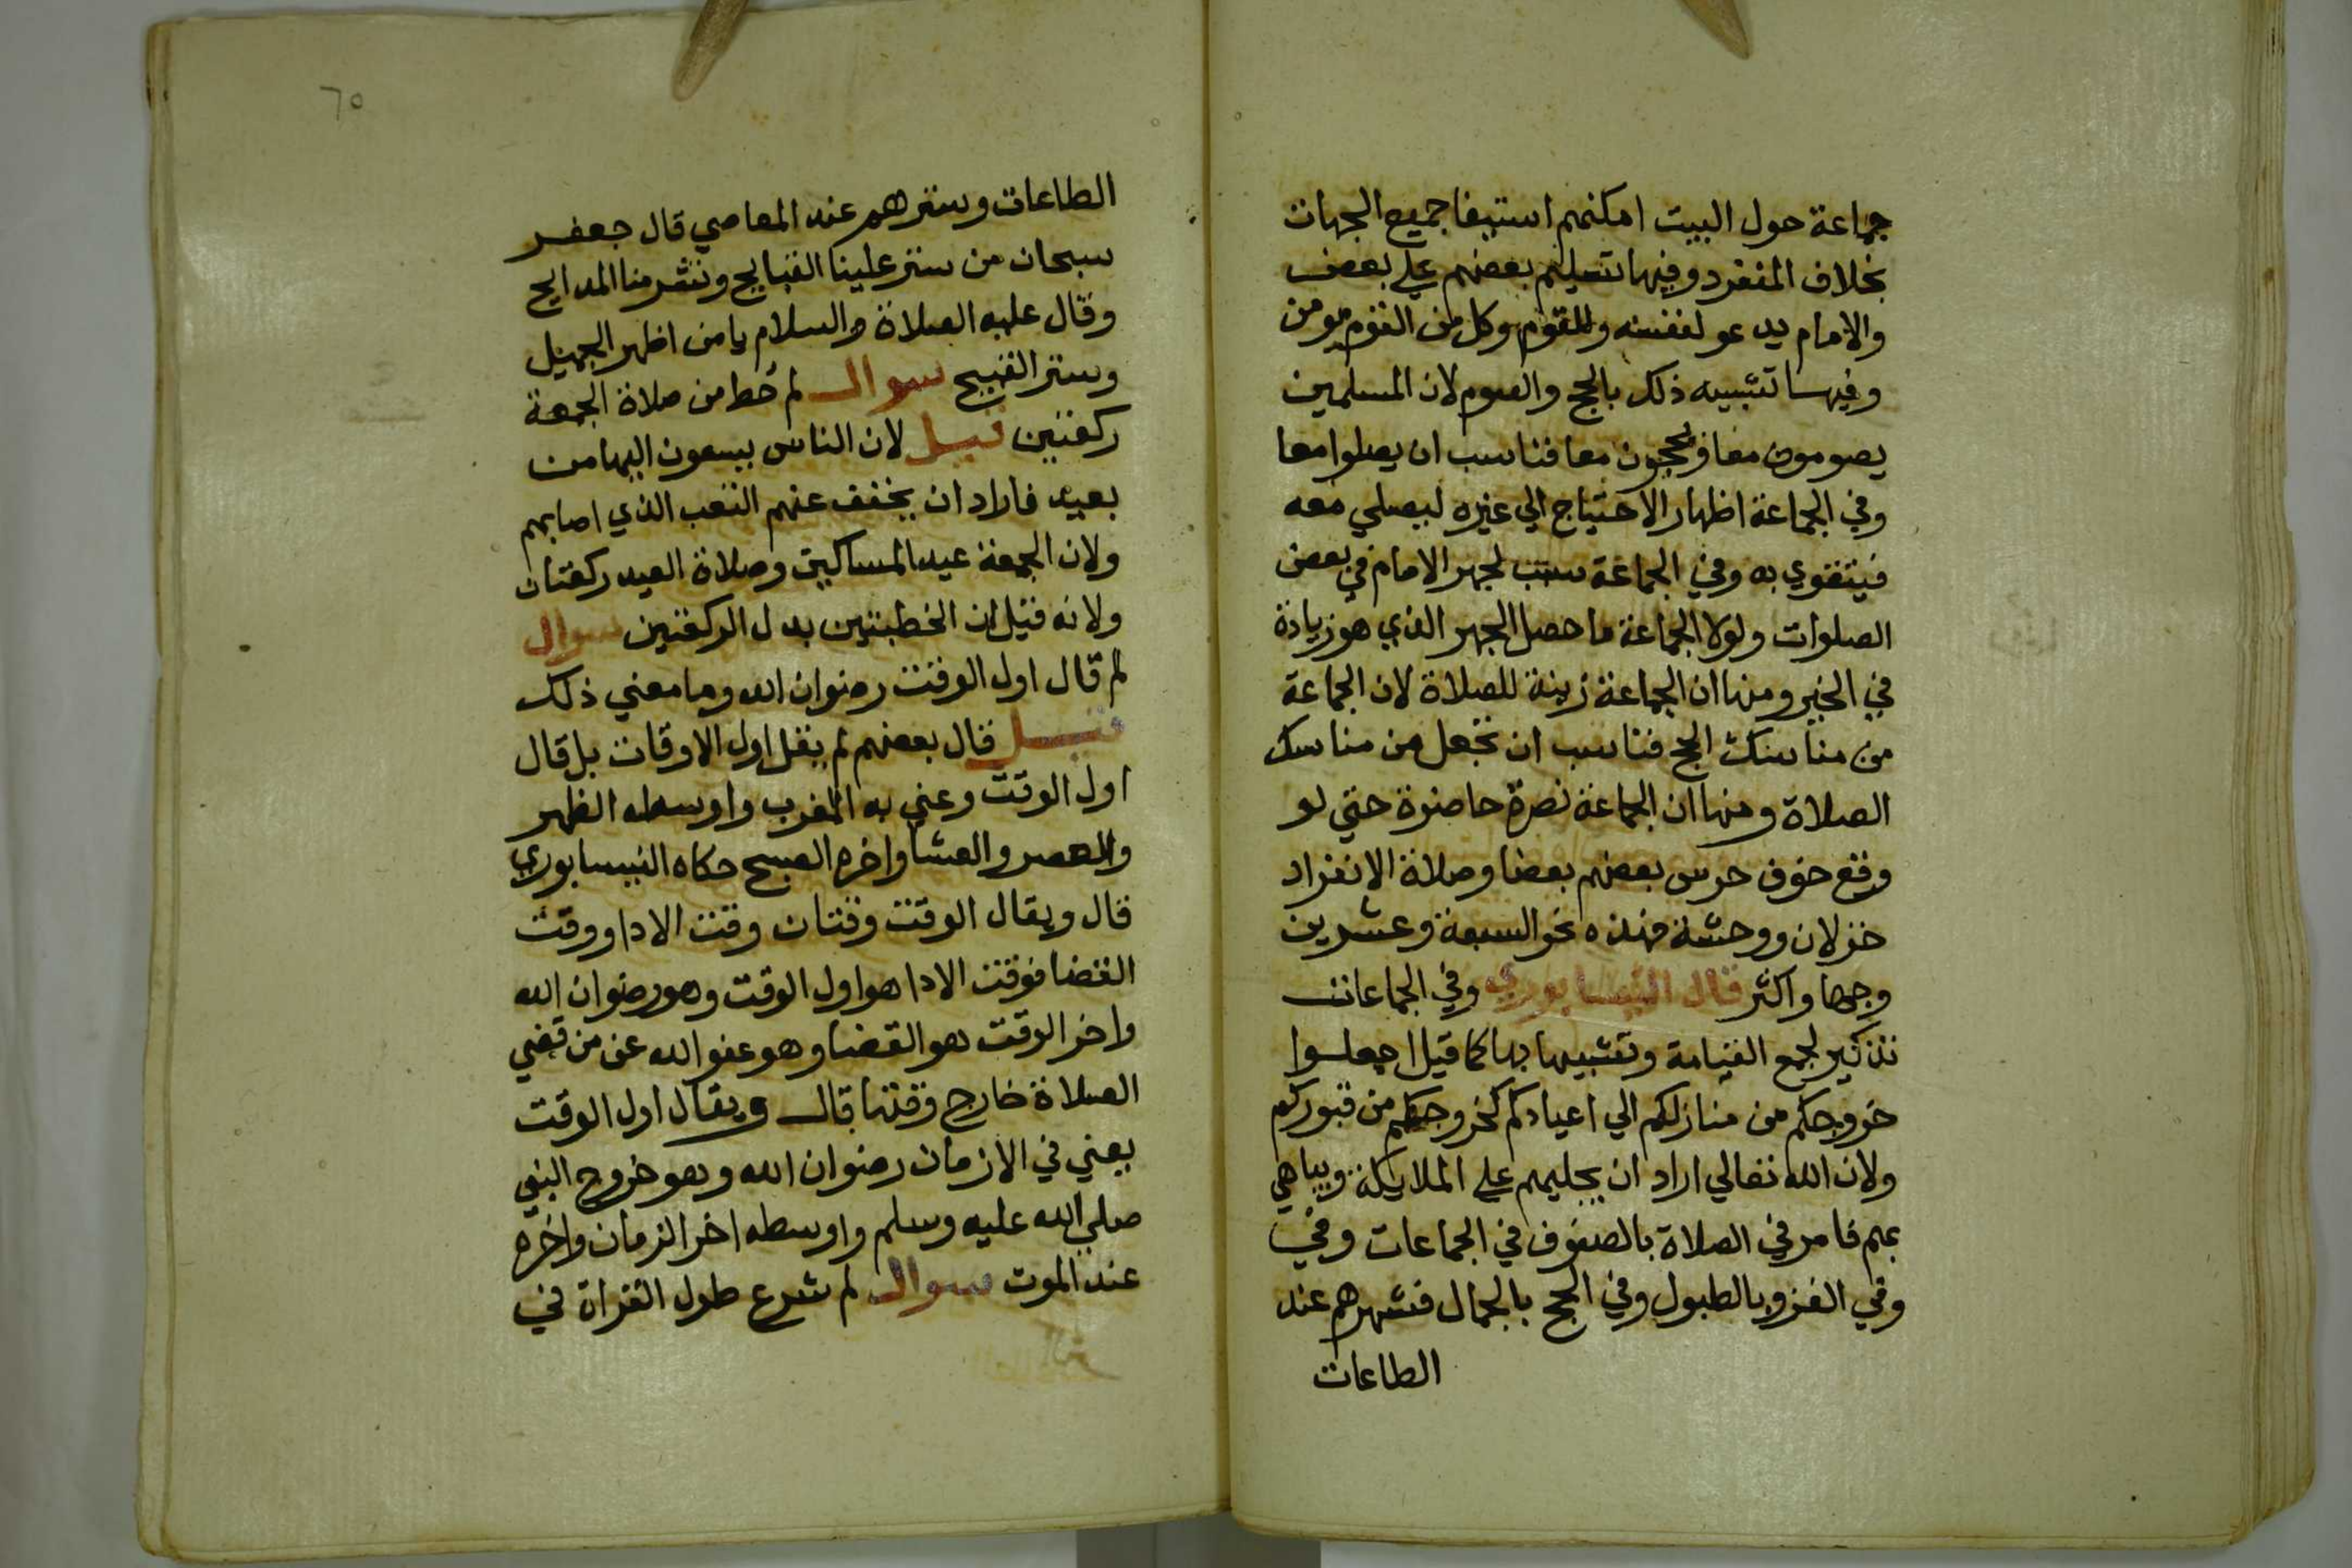 جماعة حول البيت امكنهم استيفا جميع الجهات
بخلاف المنفرد وفيها تسليم بعضهم علي بعض
والامام يدعو لنفسه وللقوم وكل من القوم مومن
وفيها تشبيه ذلك بالحج والصوم لان المسلمين
يصومون معا ويحجون معا فناسب ان يصلوا معا
وفي الجماعة اظهار الاحتياج الي غيره ليصلي معه
فيتقوي به وفي الجماعة سبب لجهر الامام في بعض
الصلوات ولولا الجماعة ما حصل الجهر الذي هو زيادة
في الخير ومنها ان الجماعة زينة للصلاة لان الجماعة
من مناسك الحج فناسب ان تجعل من مناسك
الصلاة ومنها ان الجماعة نصرة حاضرة حتي لو
وقع خوف حرس بعضهم بعضا وصلاة الانفراد
خزلان ووحشة فهذه نحو السبعة وعشرين
وجها واكثر قال النيسابوري وفي الجماعات
تذكير لجمع القيامة وتشبيها بها كما قيل اجعلوا
خروجكم من منازلكم الي اعيادكم كخروجكم من قبوركم
ولان الله تعالي اراد ان يجليهم علي الملايكة ويباهي
بهم فامر في الصلاة بالصفوف في الجماعات وفي
وفي الغزو بالطبول وفي الحج بالجمال فشهرهم عند
الطاعات
٦٥
الطاعات وسترهم عند المعاصي قال جعفر
سبحان من ستر علينا القبايح ونشر منا المدايح
وقال عليه الصلاة والسلام يا من اظهر الجميل
وستر القبيح سوال لم حط من صلاة الجمعة
ركعتين قيل لان الناس يسعون اليها من
بعيد فاراد ان يخفف عنهم التعب الذي اصابهم
ولان الجمعة عيد المساكين وصلاة العيد ركعتان
ولانه قيل ان الخطبتين بدل الركعتين سوال
لم قال اول الوقت رضوان الله وما معني ذلك
قيل قال بعضهم لم يقل اول الاوقات بل قال
اول الوقت وعني به المغرب واوسطه الظهر
والعصر والعشا واخره الصبح حكاه النيسابوري
قال ويقال الوقت وقتان وقت الادا ووقت
القضا فوقت الادا هو اول الوقت وهو رضوان الله
واخر الوقت هو القضا وهو عفو الله عن من قضي
الصلاة خارج وقتها قال ويقال اول الوقت
يعني في الازمان رضوان الله وهو خروج النبي
صلي الله عليه وسلم واوسطه اخر الزمان واخره
عند الموت سوال لم شرع طول القراة في